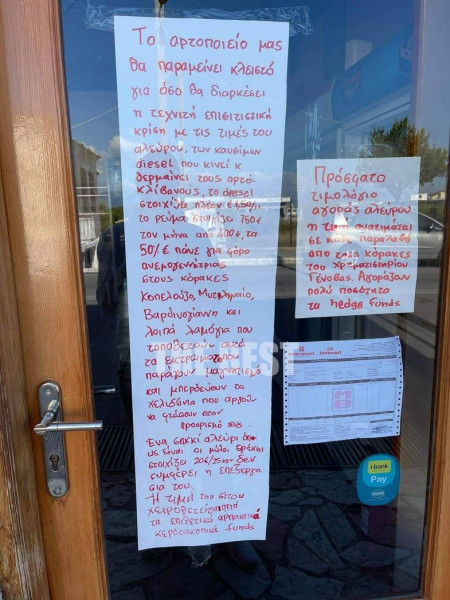 Το αρτοποιείο μας
θα παραμείνει κλειστό
για όσο θα διαρκέσει
η τεχνιτή επισιτιστική
κρίση με τις τιμές του
αλεύρου, των καυσίμων
diesel που κινεί κ
θερμαίνει τους αρτο-
κλιβάνους, το diesel
στοιχίζει πλέον €1,50/λ.
το ρεύμα στοιχίζει 750€
τον μήνα από 400€, τα
50/€ πάνε για φόρο
ανεμογεννήτριας
στους κόρακες
Κοπελούζο, Μυτιληναίο,
Βαρδινογιάννη και
λοιπά λαμόγια που
τοποθετούν αυτά
τα εκτρώματα που
παράγουν μαγνητισμό
και μπερδεύουν τα
χελιδόνια που αργούν
να φτάσουν στον
προορισμό τους.
Ένα σακκί αλεύρι όπως
ως είναι οι μύλοι Θράκης
στοιχίζει 20€/25κιλ δεν
συμφέρει η επεξεργα
σία του.
Η τιμή του σίτου
χειραγωγείται από
τα επιθετικά αρπακτικά
κερδοσκοπικά funds
Πρόσφατο
τιμολόγιο
αγοράς αλεύρου
η τιμή ανατιμάται
σε κάθε παραλαβή
από τους κόρακες
του Χρηματιστηρίου
Γένοβας. Αγοράζουν
πολύ ποσότητα
τα hedge funds
i-bank
Pay